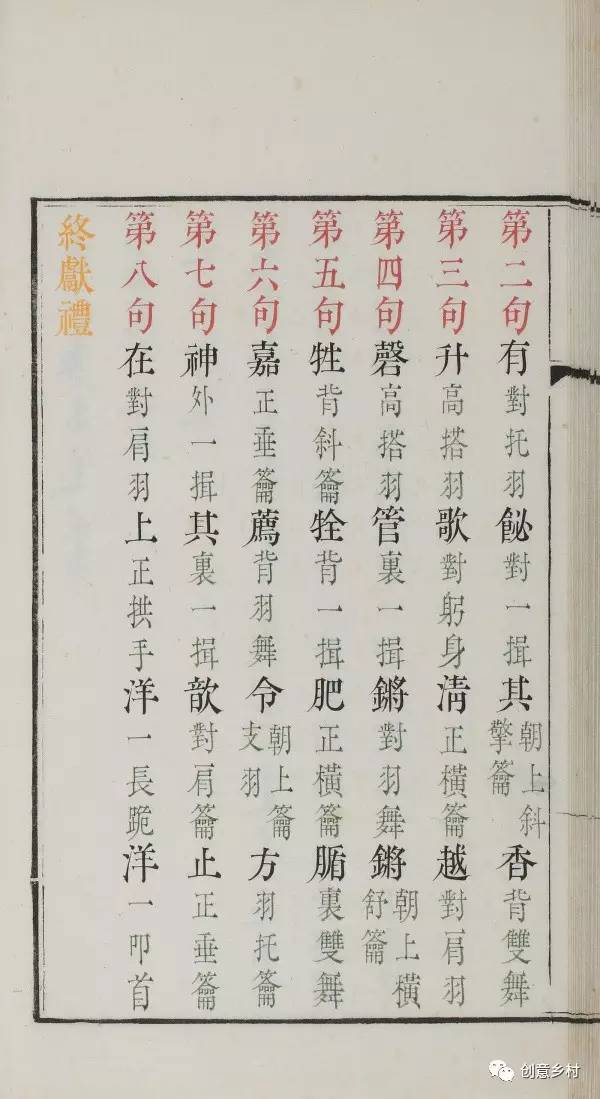 第二句有對托羽飶對一揖其朝上斜擎籥香背雙舞
第三句升高搭羽歌對躬身清正橫籥越對肩羽
第四句磬高搭羽管裏一揖鏘對羽舞鏘朝上橫舒籥
第五句牲背斜籥牷背一揖肥正橫籥腯裏雙舞
第六句嘉正垂籥薦背羽舞令朝上籥支羽方羽托籥
第七句神外一揖其裏一揖歆對肩籥止正垂籥
第八句在對肩羽上正拱手洋一長跪洋一叩首
終獻禮
创意乡村